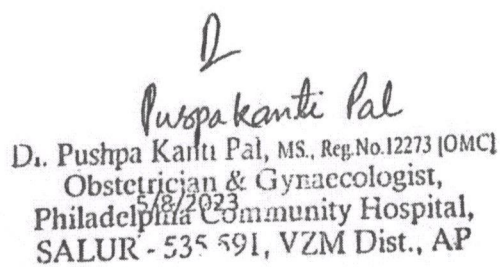 Puspakanti Pal
Dr. Pushpa Kanti Pal, MS., Reg.No.12273 [OMC]
Obstetrician & Gynaecologist,
5/8/2023
Philadelphia Community Hospital,
SALUR - 535 591, VZM Dist., AP